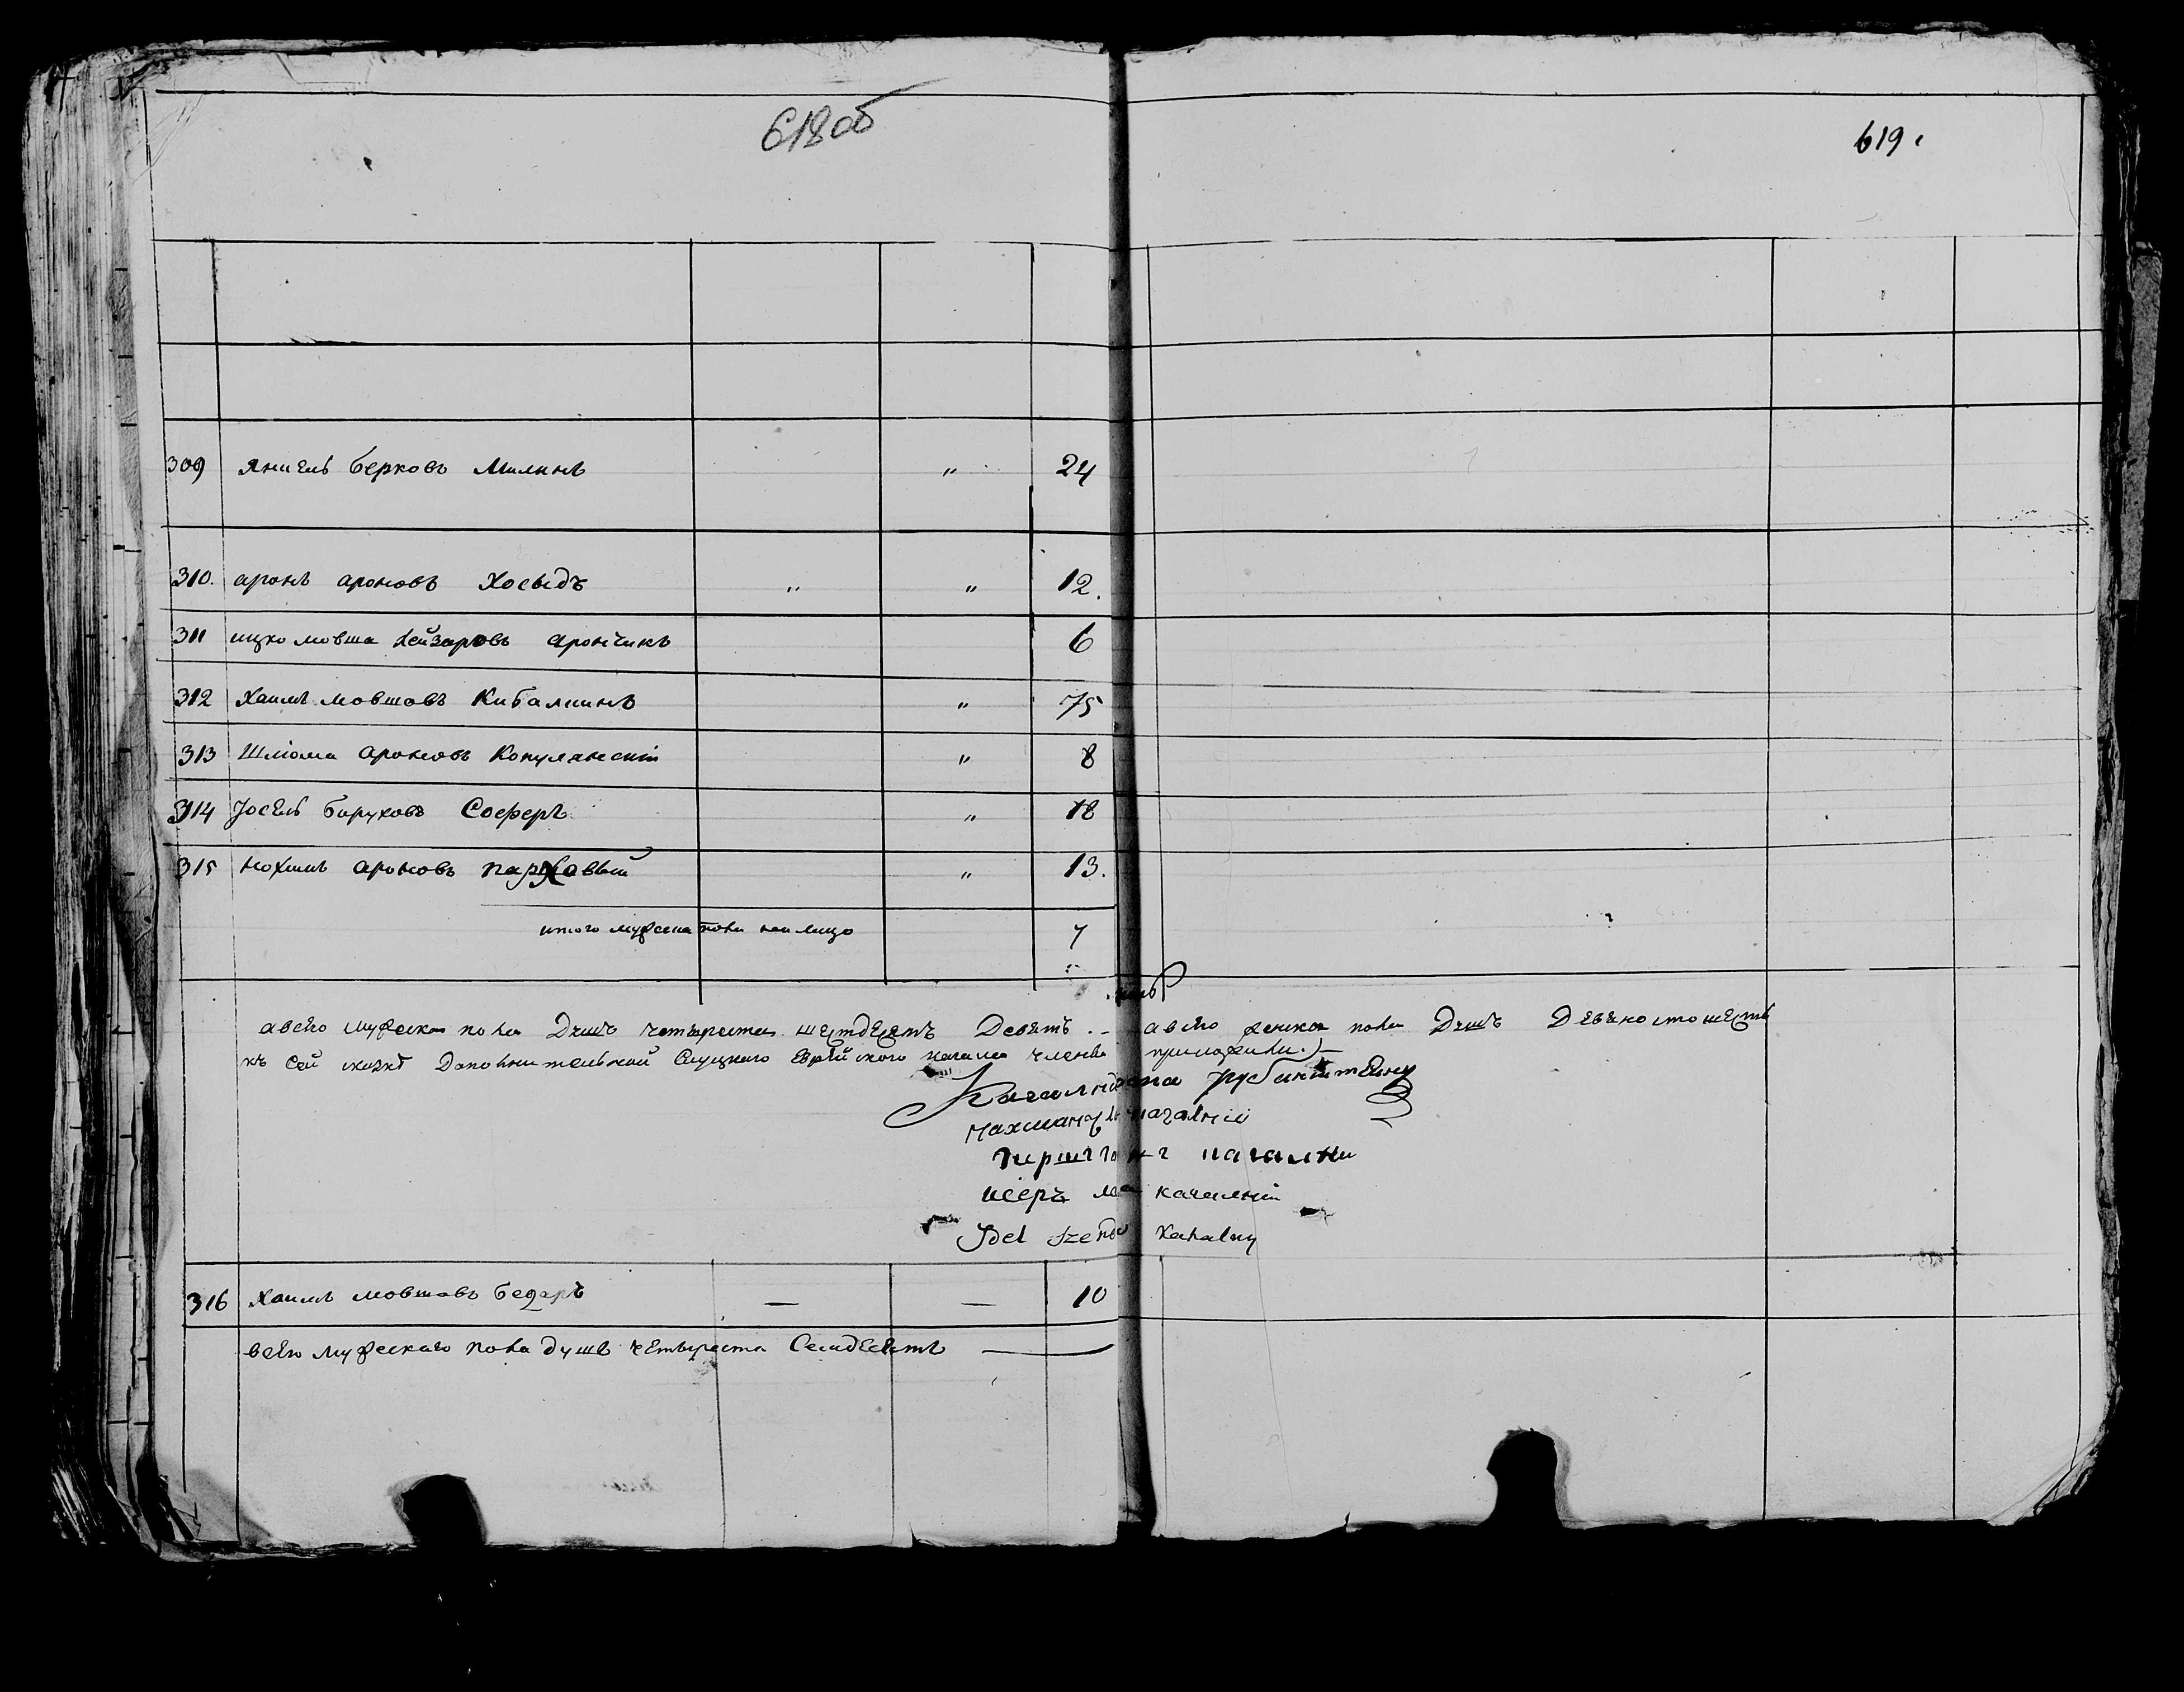 618об
619.
309 Янкель Берков Милинъ " 24
310. аронъ ароновъ Хосыдъ " " 12.
311 ицко мовша Лейзаровъ арончикъ 6
312 Хаимъ мовшовъ Кибалминъ " 75
313 Шліома ароновъ Копулянскій " 8
314 Іосель Боруховъ Соферъ " 18
315 нохимъ ароновъ пархавый " 13.
итого мужеска пола на лицо 7
авсего мужеска пола Душъ четыреста шестдесятъ Девять .- авсего женска пола Душъ Девяностошесть
къ сей сказкѣ Дополнительной Слуцкаго Еврейского кагала члены приложили.)
рубинштеину
нахман кагалнiй
гирш кагалны
исеръ кагалній
Jdel Szend Kahalny
316 Хаимъ мовшовъ бедеръ — — 10
всего мужескаго пола душъ четыреста Семдесятъ —